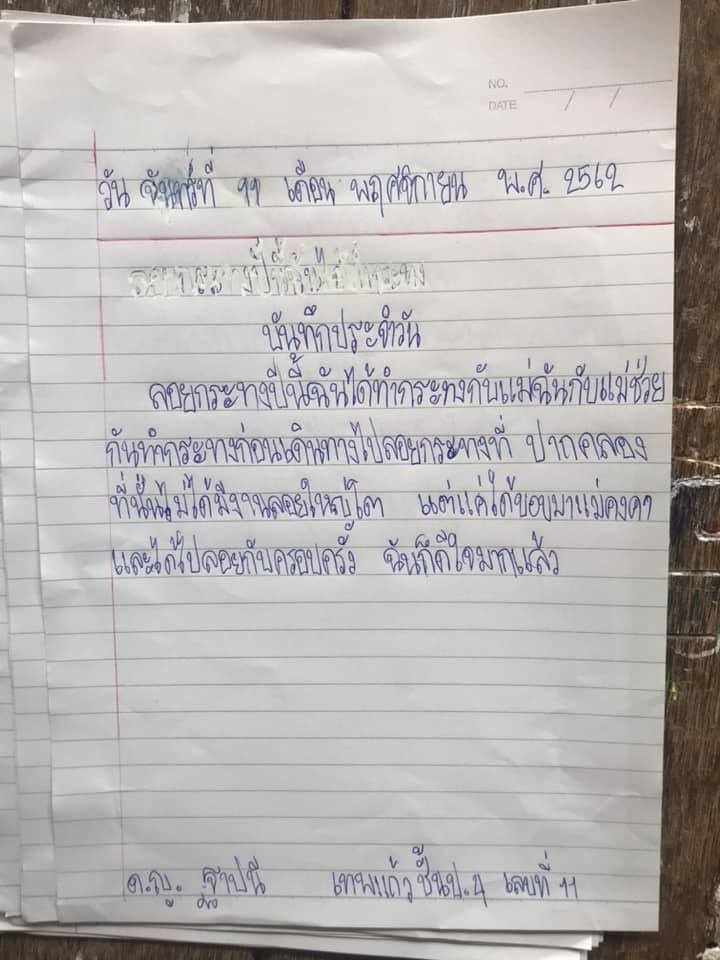 NO.
DATE / /
วัน จันทร์ที่ 11 เดือน พฤศจิกายน พ.ศ. 2562
บันทึกประจำวัน
ลอยกระทงปีนี้ฉันได้ทำกระทงกับแม่ฉันกับแม่ช่วย
กันทำกระทงก่อนเดินทางไปลอยกระทงที่ ปากคลอง
ที่นั่นไม่ได้มีงานลอยใหญ่โต แต่แค่ได้ขอขมาแม่คงคา
และได้ไปลอยกับครอบครัว ฉันก็ดีใจมากแล้ว
ด.ญ. ฐาปนี เทพแก้ว ชั้นป.4 เลขที่ 11